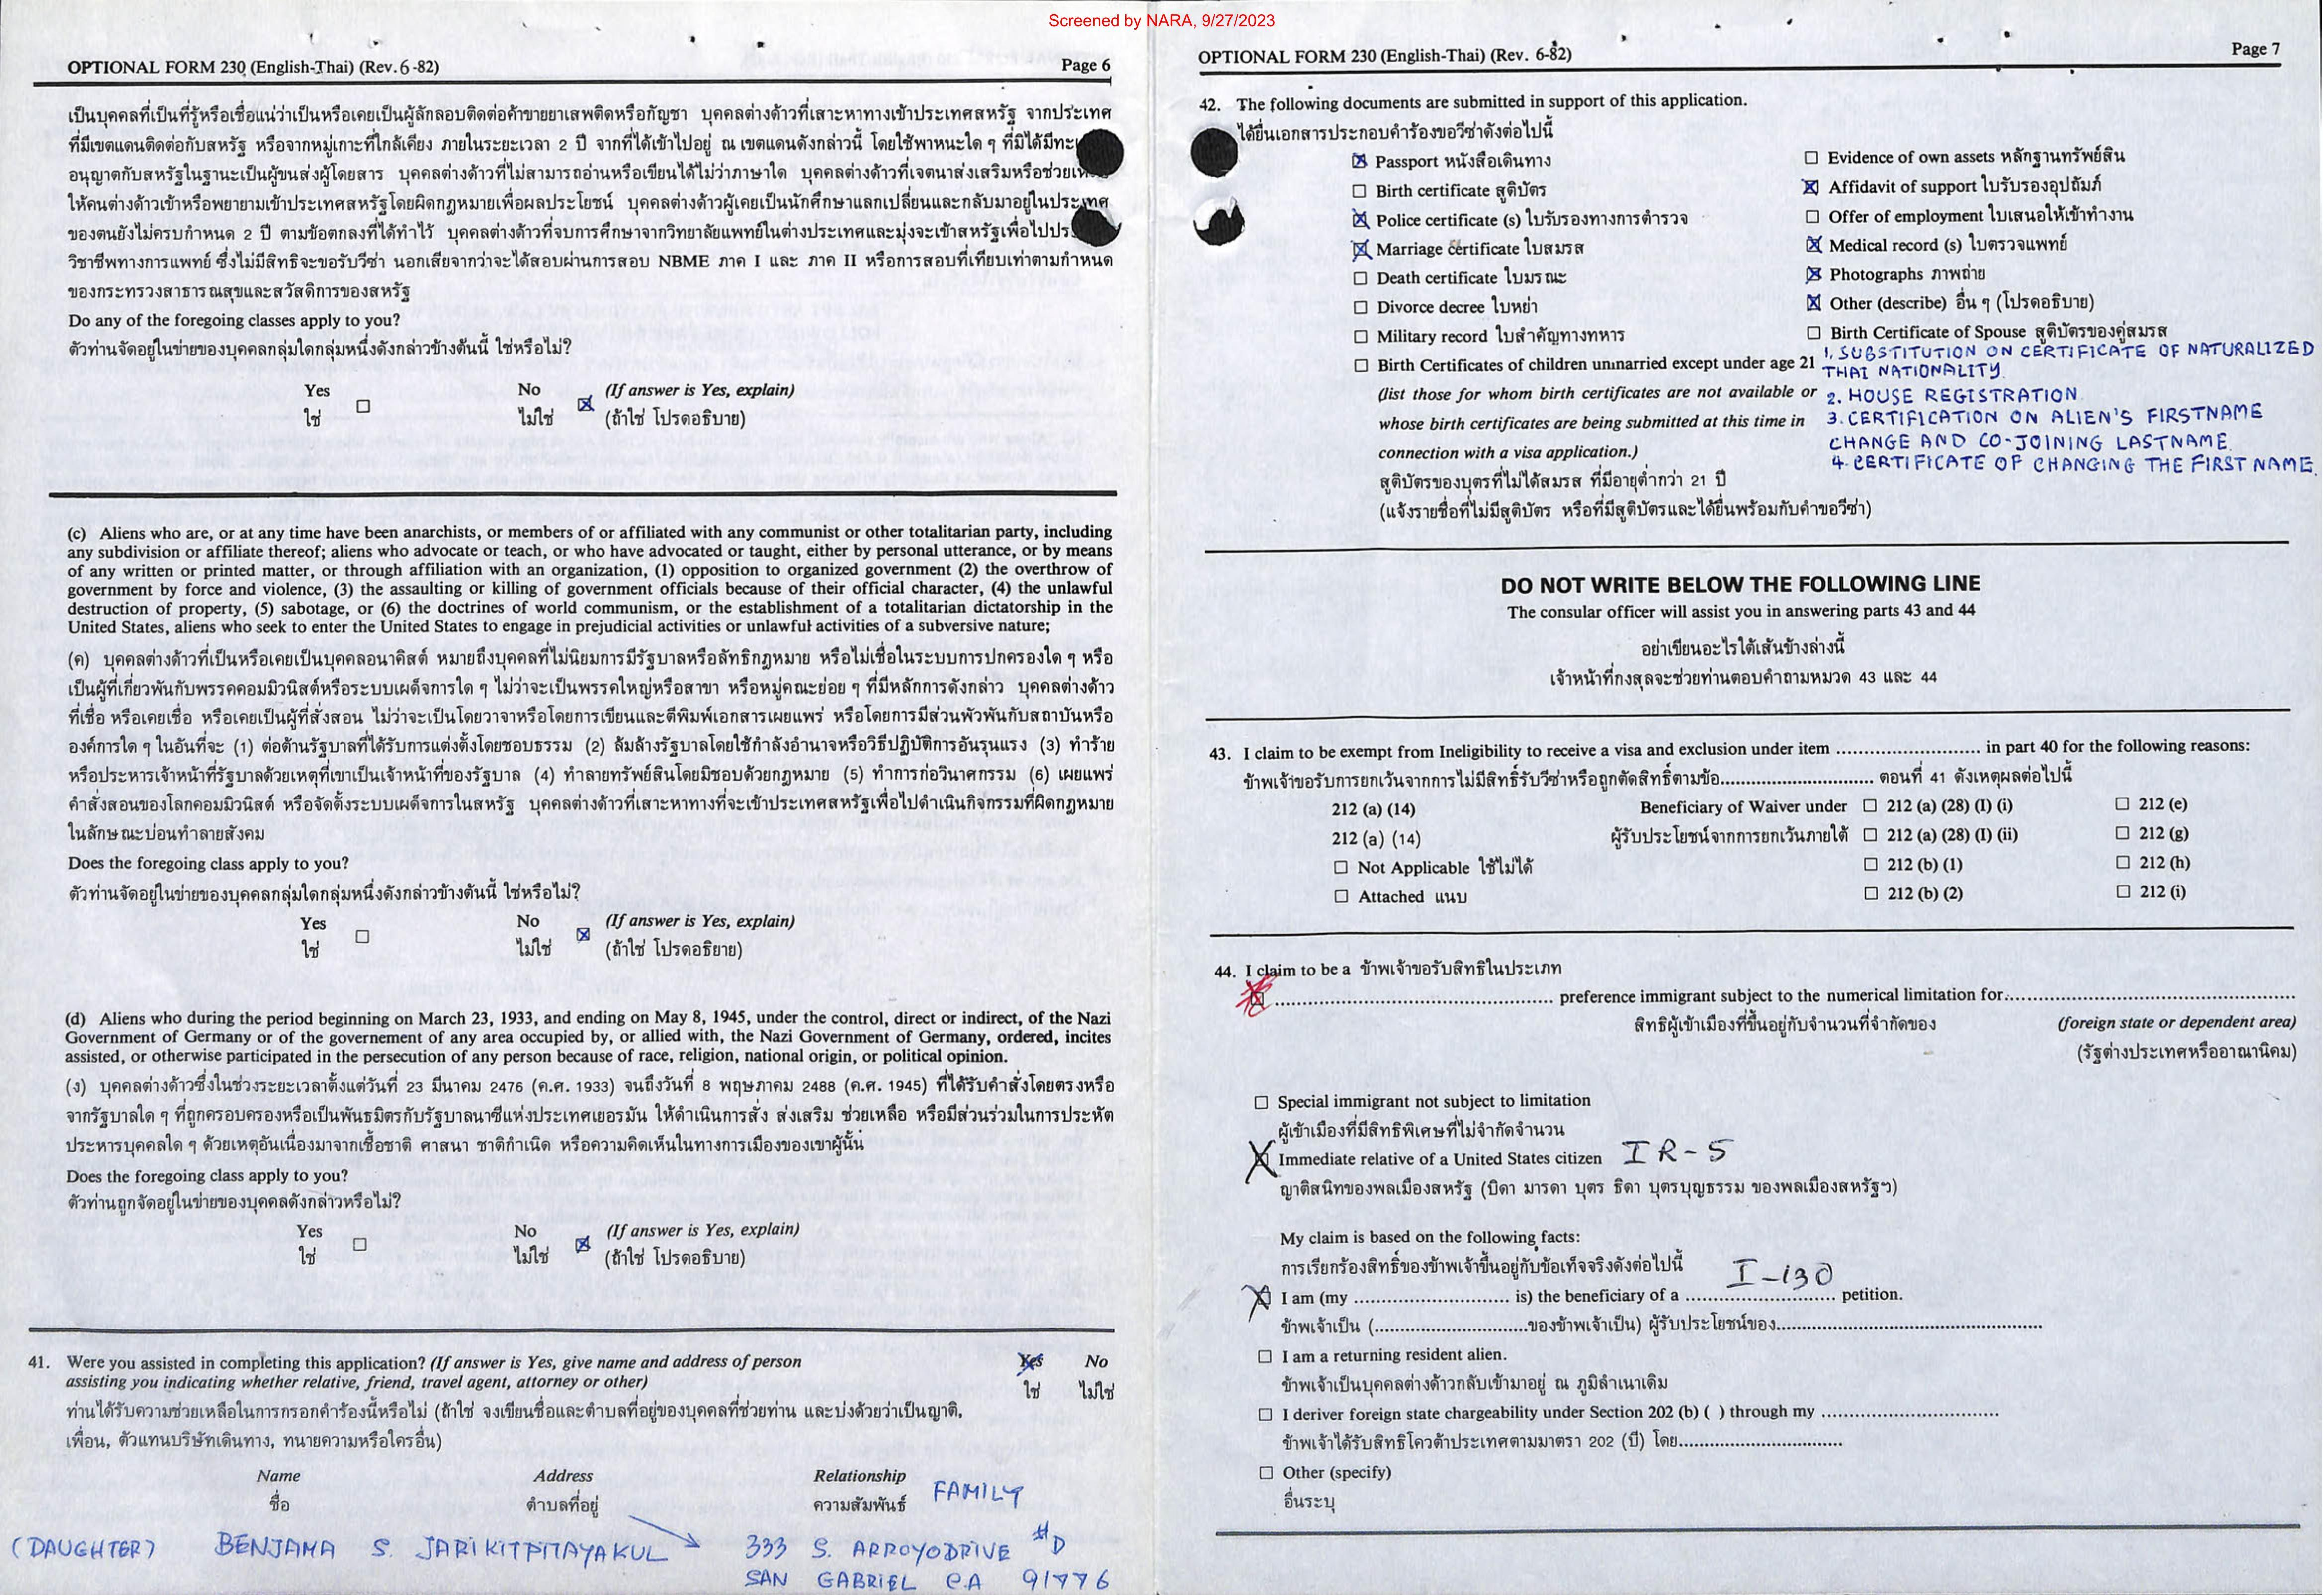 Screened by NARA, 9/27/2023
OPTIONAL FORM 230 (English-Thai) (Rev. 6-82)
Page 6
เป็นบุคคลที่เป็นที่รู้หรือเชื่อแน่ว่าเป็นหรือเคยเป็นผู้ลักลอบติดต่อค้าขายยาเสพติดหรือกัญชา บุคคลต่างด้าวที่เสาะหาทางเข้าประเทศสหรัฐ จากประเทศ
ที่มีเขตแดนติดต่อกับสหรัฐ หรือจากหมู่เกาะที่ใกล้เคียง ภายในระยะเวลา 2 ปี จากที่ได้เข้าไปอยู่ ณ เขตแดนดังกล่าวนี้ โดยใช้พาหนะใด ๆ ที่มิได้มี
อนุญาตกับสหรัฐในฐานะเป็นผู้ขนส่งผู้โดยสาร บุคคลต่างด้าวที่ไม่สามารถอ่านหรือเขียนได้ไม่ว่าภาษาใด บุคคลต่างด้าวที่เจตนาส่งเสริมหรือช่วย
ให้คนต่างด้าวเข้าหรือพยายามเข้าประเทศสหรัฐโดยผิดกฎหมายเพื่อผลประโยชน์ บุคคลต่างด้าวผู้เคยเป็นนักศึกษาแลกเปลี่ยนและกลับมาอยู่ในประเทศ
ของตนยังไม่ครบกำหนด 2 ปี ตามข้อตกลงที่ได้ทำไว้ บุคคลต่างด้าวที่จบการศึกษาจากวิทยาลัยแพทย์ในต่างประเทศและมุ่งจะเข้าสหรัฐเพื่อไป
วิชาชีพทางการแพทย์ ซึ่งไม่มีสิทธิจะขอรับวีซ่า นอกเสียจากว่าจะได้สอบผ่านการสอบ NBME ภาค I และ ภาค II หรือการสอบที่เทียบเท่าตามกำหนด
ของกระทรวงสาธารณสุขและสวัสดิการของสหรัฐ
Do any of the foregoing classes apply to you?
ตัวท่านจัดอยู่ในข่ายของบุคคลกลุ่มใดกลุ่มหนึ่งดังกล่าวข้างต้นนี้ ใช่หรือไม่?
Yes ☐ No ☒ (If answer is Yes, explain)
ใช่ ไม่ใช่ (ถ้าใช่ โปรดอธิบาย)
(c) Aliens who are, or at any time have been anarchists, or members of or affiliated with any communist or other totalitarian party, including
any subdivision or affiliate thereof; aliens who advocate or teach, or who have advocated or taught, either by personal utterance, or by means
of any written or printed matter, or through affiliation with an organization, (1) opposition to organized government (2) the overthrow of
government by force and violence, (3) the assaulting or killing of government officials because of their official character, (4) the unlawful
destruction of property, (5) sabotage, or (6) the doctrines of world communism, or the establishment of a totalitarian dictatorship in the
United States, aliens who seek to enter the United States to engage in prejudicial activities or unlawful activities of a subversive nature;
(ค) บุคคลต่างด้าวที่เป็นหรือเคยเป็นบุคคลอนาคิสต์ หมายถึงบุคคลที่ไม่นิยมการมีรัฐบาลหรือลัทธิกฎหมาย หรือไม่เชื่อในระบบการปกครองใด ๆ หรือ
เป็นผู้ที่เกี่ยวพันกับพรรคคอมมิวนิสต์หรือระบบเผด็จการใด ๆ ไม่ว่าจะเป็นพรรคใหญ่หรือสาขา หรือหมู่คณะย่อย ๆ ที่มีหลักการดังกล่าว บุคคลต่างด้าว
ที่เชื่อ หรือเคยเชื่อ หรือเคยเป็นผู้ที่สั่งสอน ไม่ว่าจะเป็นโดยวาจาหรือโดยการเขียนและตีพิมพ์เอกสารเผยแพร่ หรือโดยการมีส่วนพัวพันกับสถาบันหรือ
องค์การใด ๆ ในอันที่จะ (1) ต่อต้านรัฐบาลที่ได้รับการแต่งตั้งโดยชอบธรรม (2) ล้มล้างรัฐบาลโดยใช้กำลังอำนาจหรือวิธีปฏิบัติการอันรุนแรง (3) ทำร้าย
หรือประหารเจ้าหน้าที่รัฐบาลด้วยเหตุที่เขาเป็นเจ้าหน้าที่ของรัฐบาล (4) ทำลายทรัพย์สินโดยมิชอบด้วยกฎหมาย (5) ทำการก่อวินาศกรรม (6) เผยแพร่
คำสั่งสอนของโลกคอมมิวนิสต์ หรือจัดตั้งระบบเผด็จการในสหรัฐ บุคคลต่างด้าวที่เสาะหาทางที่จะเข้าประเทศสหรัฐเพื่อไปดำเนินกิจกรรมที่ผิดกฎหมาย
ในลักษณะบ่อนทำลายสังคม
Does the foregoing class apply to you?
ตัวท่านจัดอยู่ในข่ายของบุคคลกลุ่มใดกลุ่มหนึ่งดังกล่าวข้างต้นนี้ ใช่หรือไม่?
Yes ☐ No ☒ (If answer is Yes, explain)
ใช่ ไม่ใช่ (ถ้าใช่ โปรดอธิยาย)
(d) Aliens who during the period beginning on March 23, 1933, and ending on May 8, 1945, under the control, direct or indirect, of the Nazi
Government of Germany or of the governement of any area occupied by, or allied with, the Nazi Government of Germany, ordered, incites
assisted, or otherwise participated in the persecution of any person because of race, religion, national origin, or political opinion.
(ง) บุคคลต่างด้าวซึ่งในช่วงระยะเวลาตั้งแต่วันที่ 23 มีนาคม 2476 (ค.ศ. 1933) จนถึงวันที่ 8 พฤษภาคม 2488 (ค.ศ. 1945) ที่ได้รับคำสั่งโดยตรงหรือ
จากรัฐบาลใด ๆ ที่ถูกครอบครองหรือเป็นพันธมิตรกับรัฐบาลนาซีแห่งประเทศเยอรมัน ให้ดำเนินการสั่ง ส่งเสริม ช่วยเหลือ หรือมีส่วนร่วมในการประหัต
ประหารบุคคลใด ๆ ด้วยเหตุอันเนื่องมาจากเชื้อชาติ ศาสนา ชาติกำเนิด หรือความคิดเห็นในทางการเมืองของเขาผู้นั้น
Does the foregoing class apply to you?
ตัวท่านถูกจัดอยู่ในข่ายของบุคคลดังกล่าวหรือไม่?
Yes ☐ No ☒ (If answer is Yes, explain)
ใช่ ไม่ใช่ (ถ้าใช่ โปรดอธิบาย)
41. Were you assisted in completing this application? (If answer is Yes, give name and address of person Yes No
assisting you indicating whether relative, friend, travel agent, attorney or other) ใช่ ไม่ใช่
ท่านได้รับความช่วยเหลือในการกรอกคำร้องนี้หรือไม่ (ถ้าใช่ จงเขียนชื่อและตำบลที่อยู่ของบุคคลที่ช่วยท่าน และบ่งด้วยว่าเป็นญาติ,
เพื่อน, ตัวแทนบริษัทเดินทาง, ทนายความหรือใครอื่น)
Name Address Relationship FAMILY
ชื่อ ตำบลที่อยู่ ความสัมพันธ์
(DAUGHTER) BENJAMA S. JARIKITPITAYAKUL 333 S. ARROYODRIVE #D
SAN GABRIEL CA 91776
OPTIONAL FORM 230 (English-Thai) (Rev. 6-82)
Page 7
42. The following documents are submitted in support of this application.
ได้ยื่นเอกสารประกอบคำร้องขอวีซ่าดังต่อไปนี้
☒ Passport หนังสือเดินทาง
☐ Birth certificate สูติบัตร
☒ Police certificate (s) ใบรับรองทางการตำรวจ
☒ Marriage certificate ใบสมรส
☐ Death certificate ใบมรณะ
☐ Divorce decree ใบหย่า
☐ Military record ใบสำคัญทางทหาร
☐ Birth Certificates of children unmarried except under age 21
(list those for whom birth certificates are not available or
whose birth certificates are being submitted at this time in
connection with a visa application.)
สูติบัตรของบุตรที่ไม่ได้สมรส ที่มีอายุต่ำกว่า 21 ปี
(แจ้งรายชื่อที่ไม่มีสูติบัตร หรือที่มีสูติบัตรและได้ยื่นพร้อมกับคำขอวีซ่า)
☐ Evidence of own assets หลักฐานทรัพย์สิน
☒ Affidavit of support ใบรับรองอุปถัมภ์
☐ Offer of employment ใบเสนอให้เข้าทำงาน
☒ Medical record (s) ใบตรวจแพทย์
☒ Photographs ภาพถ่าย
☒ Other (describe) อื่น ๆ (โปรดอธิบาย)
☐ Birth Certificate of Spouse สูติบัตรของคู่สมรส
1. SUBSTITUTION ON CERTIFICATE OF NATURALIZED
THAI NATIONALITY.
2. HOUSE REGISTRATION
3. CERTIFICATION ON ALIEN'S FIRSTNAME
CHANGE AND CO-JOINING LASTNAME.
4. CERTIFICATE OF CHANGING THE FIRST NAME.
DO NOT WRITE BELOW THE FOLLOWING LINE
The consular officer will assist you in answering parts 43 and 44
อย่าเขียนอะไรใต้เส้นข้างล่างนี้
เจ้าหน้าที่กงสุลจะช่วยท่านตอบคำถามหมวด 43 และ 44
43. I claim to be exempt from Ineligibility to receive a visa and exclusion under item .......... in part 40 for the following reasons:
ข้าพเจ้าขอรับการยกเว้นจากการไม่มีสิทธิ์รับวีซ่าหรือถูกตัดสิทธิ์ตามข้อ.......... ตอนที่ 41 ดังเหตุผลต่อไปนี้
212 (a) (14) Beneficiary of Waiver under ☐ 212 (a) (28) (I) (i) ☐ 212 (e)
212 (a) (14) ผู้รับประโยชน์จากการยกเว้นภายใต้ ☐ 212 (a) (28) (I) (ii) ☐ 212 (g)
☐ Not Applicable ใช้ไม่ได้ ☐ 212 (b) (1) ☐ 212 (h)
☐ Attached แนบ ☐ 212 (b) (2) ☐ 212 (i)
44. I claim to be a ข้าพเจ้าขอรับสิทธิในประเภท
☒ .......... preference immigrant subject to the numerical limitation for..........
สิทธิผู้เข้าเมืองที่ขึ้นอยู่กับจำนวนที่จำกัดของ (foreign state or dependent area)
(รัฐต่างประเทศหรืออาณานิคม)
☐ Special immigrant not subject to limitation
ผู้เข้าเมืองที่มีสิทธิพิเศษที่ไม่จำกัดจำนวน
☒ Immediate relative of a United States citizen IR-5
ญาติสนิทของพลเมืองสหรัฐ (บิดา มารดา บุตร ธิดา บุตรบุญธรรม ของพลเมืองสหรัฐฯ)
My claim is based on the following facts:
การเรียกร้องสิทธิ์ของข้าพเจ้าขึ้นอยู่กับข้อเท็จจริงดังต่อไปนี้
☒ I am (my .......... is) the beneficiary of a I-130 petition.
ข้าพเจ้าเป็น (..........ของข้าพเจ้าเป็น) ผู้รับประโยชน์ของ..........
☐ I am a returning resident alien.
ข้าพเจ้าเป็นบุคคลต่างด้าวกลับเข้ามาอยู่ ณ ภูมิลำเนาเดิม
☐ I deriver foreign state chargeability under Section 202 (b) ( ) through my ..........
ข้าพเจ้าได้รับสิทธิโควต้าประเทศตามมาตรา 202 (บี) โดย..........
☐ Other (specify)
อื่นระบุ